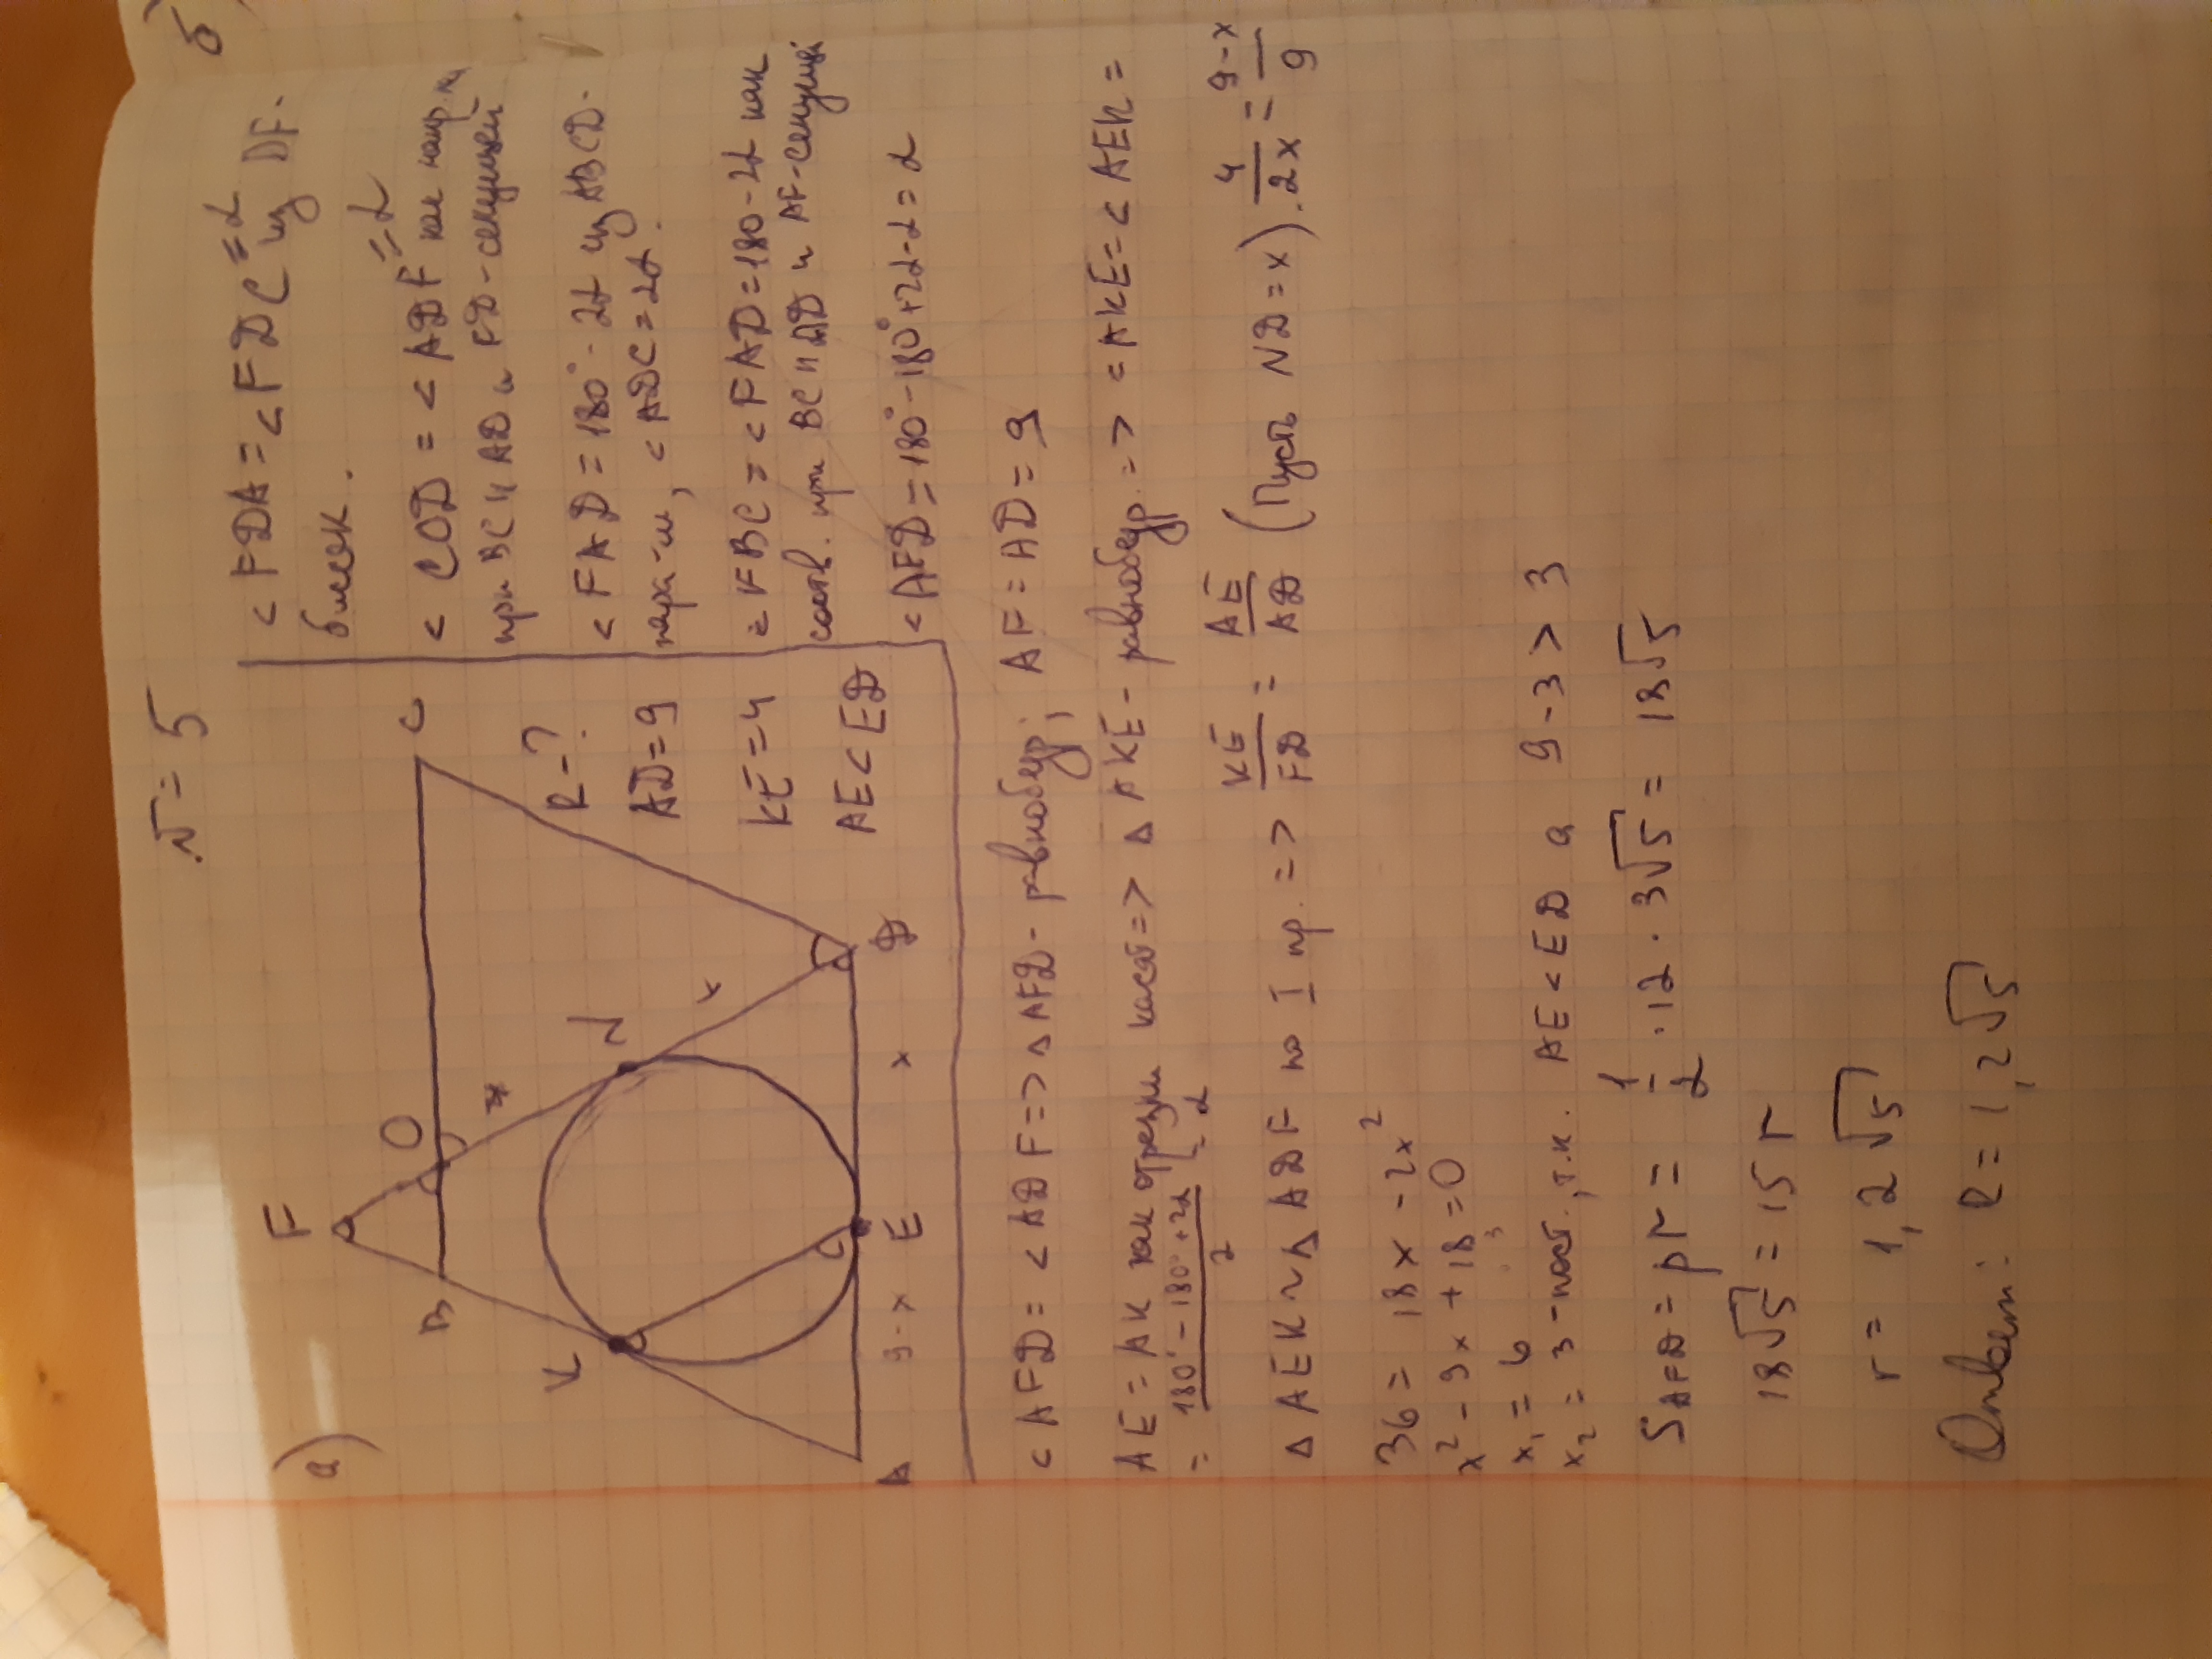 № 5
а)
б)
F
B
O
C
K
N
x
A
9-x
E
x
D
R-?
AD=9
KE=4
AE<ED
<FDA=<FDC=α из DF-
бисск.
<COD=<ADF=α как
при BC || AD и FD-секущей
<FAD=180°-2α из ABCD-
пара-м, <ADC=2α.
<FBC=<FAD=180-2α как
соотв. при BC || AD и AF-секущей
<AFD=180°-180°+2α-α=α
<AFD=<ADF=>△AFD- равнобедр; AF=AD=9
AE=AK как отрезки касат=> △AKE- равнобедр.=> <AKE=<AEK=
= (180°-180°+2α)/2 = α
△AEK~△ADF по I пр. => KE/FD = AE/AD (Пусть ND=x). 4/2x = 9-x/9
36=18x-2x²
x²-9x+18=0
x₁=6
x₂=3-пост., т.к. AE<ED а 9-3>3
S AFD=pr= 1/2 ·12·3√5=18√5
18√5=15r
r=1,2√5
Ответ: R=1,2√5